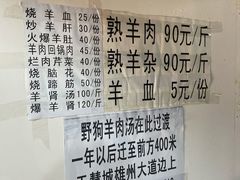 烧羊血 25/份
炒羊肝 30/份
火爆羊肚 40/份
羊回锅肉 45/份
肉芹菜 40/份
烧脑花 40/份
烧蹄筋 50/份
爆羊肾 100/斤
羊肾汤 120/斤
熟羊肉 90元/斤
熟羊杂 90元/斤
羊血 5元/份
野狗羊肉汤在此过渡
一年以后迁至前方400米
天慧城雄州大道边上